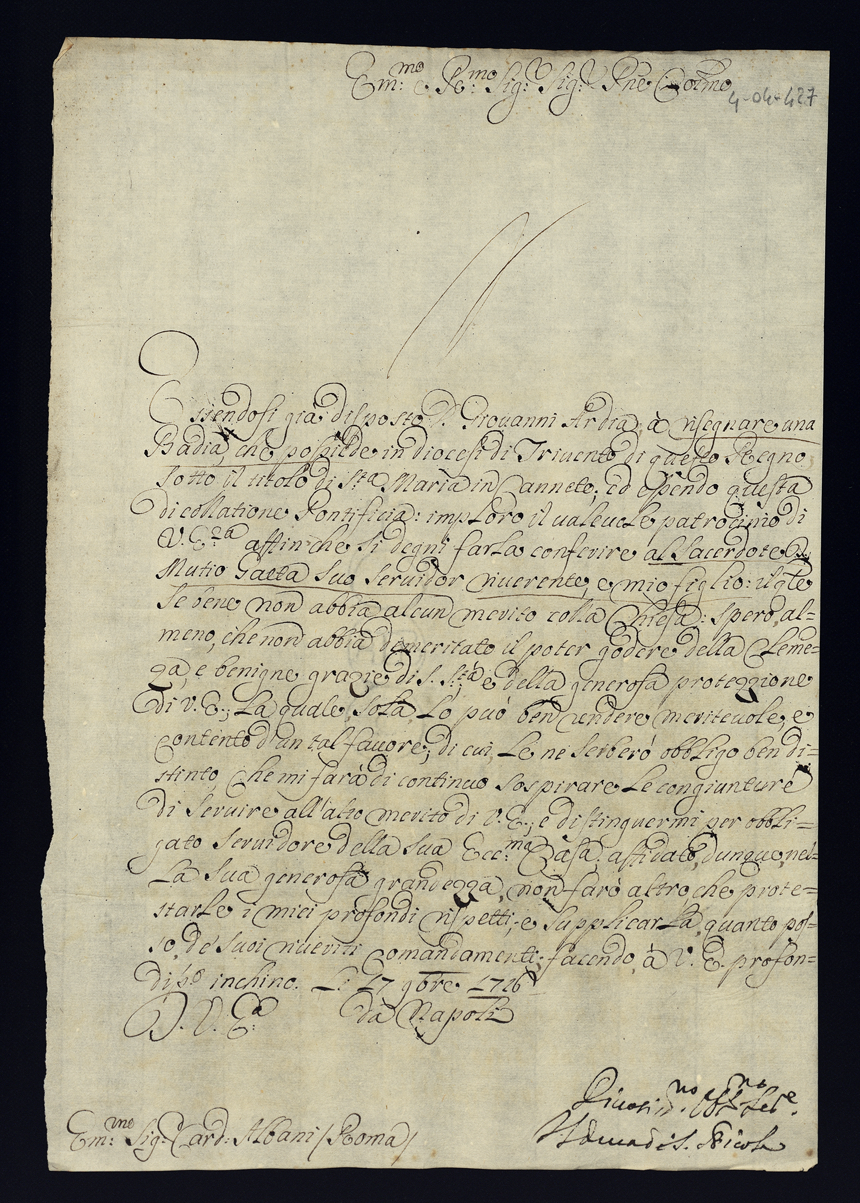 Em:mo e Re:mo Sig:r Sig:r Pne Colmo
4-04-427
Essendosi già disposto D. Giovanni Ardia, à risegnare una
Badia, che possiede in diocesi di Trivento di questo Regno
sotto il titolo di Sta Maria in Canneto; ed essendo questa
di collatione Pontificia: imploro il valevole patrocinio di
V. E:za affinche si degni farla conferire al Sacerdote D.
Mutio Gaeta suo servidor riverente, e mio figlio: il qle
se bene non abbia alcun merito colla Chiesa: spero, al=
meno, che non abbia demeritato il poter godere della Cleme=
za, e benigne grazie di S. Stà e della generosa protezzione
di V. E:, La quale, sola, Lo può ben rendere meritevole, e
contento d'un tal favore; di cui, Le ne serberò obbligo ben di=
stinto, che mi farà di continuo sospirare Le congiunture
di servire all'alto merito di V. E:, e distinguermi per obbli=
gato servidore della sua Ecc:ma Casa: affidato, dunque, nel=
La sua generosa grandezza, non farò altro che prote=
starLe i miei profondi rispetti; e supplicarLa, quanto pos=
so, de' suoi riveriti comandamenti; facendo, à V. E. profon=
diss:o inchino. Li 17 9bre 1716
D. V. E:a da Napoli
Divotis:mo Obb:mo Ser:e
Em:mo Sig:r Card: Albani (Roma)